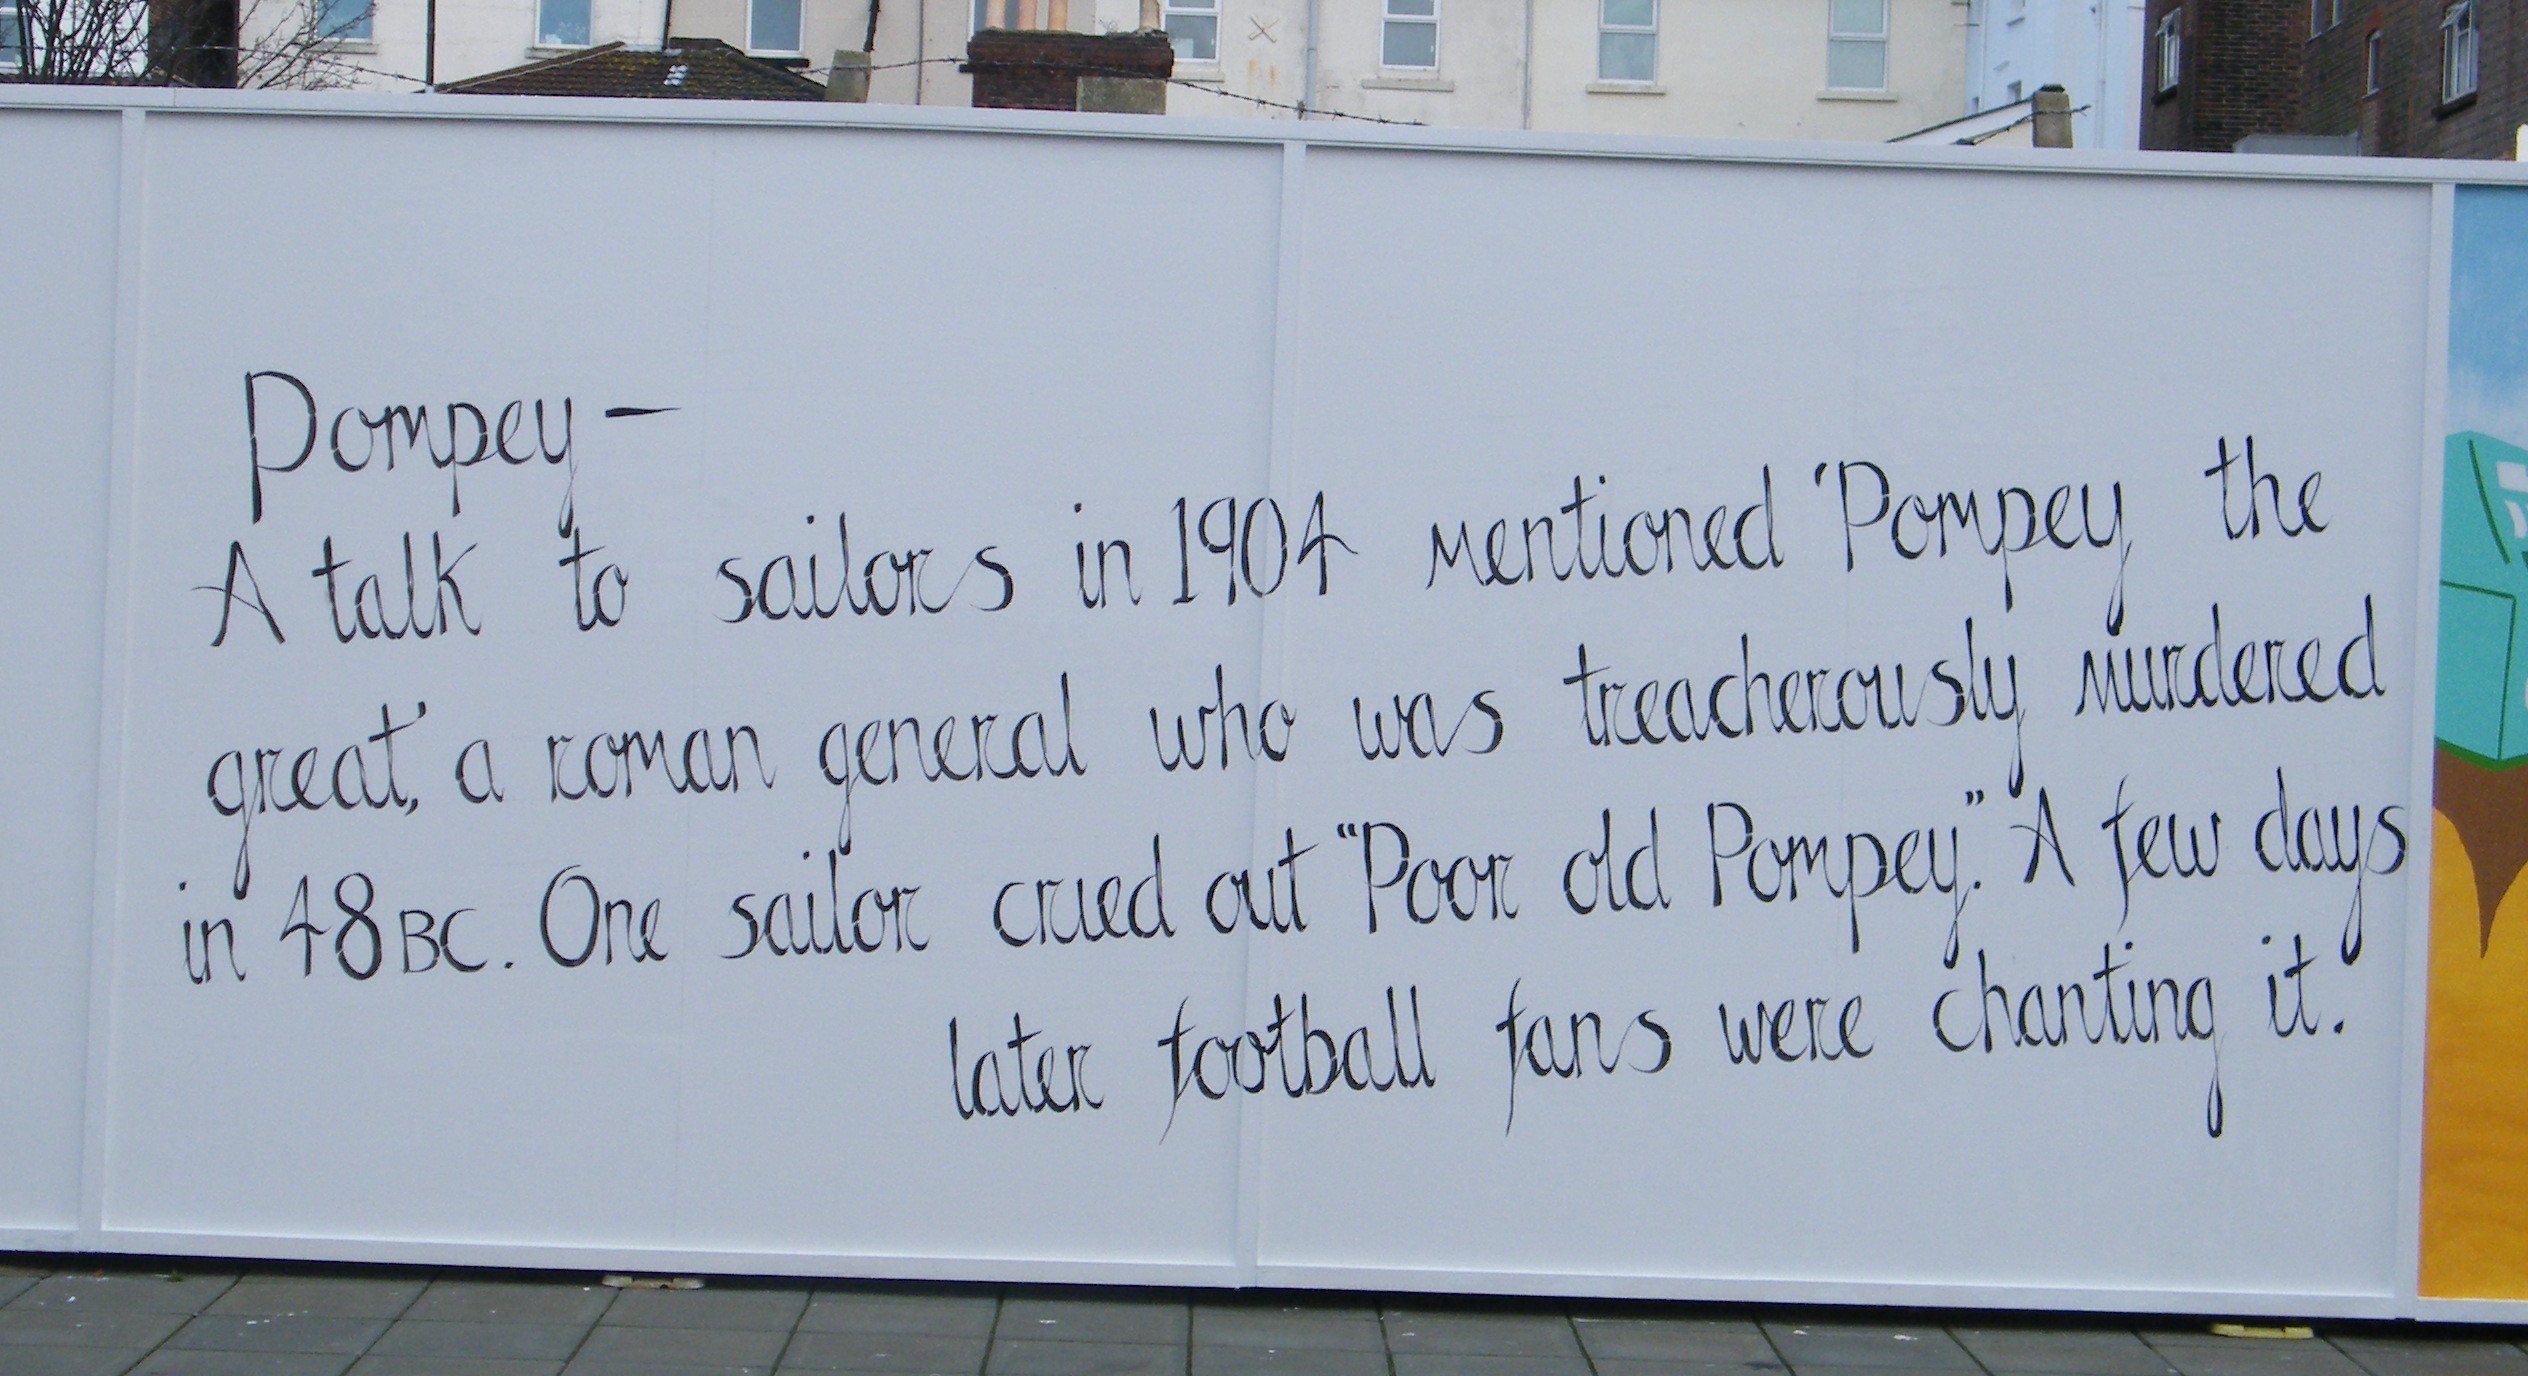 Pompey –
A talk to sailors in 1904 mentioned 'Pompey the
great', a roman general who was treacherously murdered
in 48BC. One sailor cried out "Poor old Pompey". A few days
later football fans were chanting it.